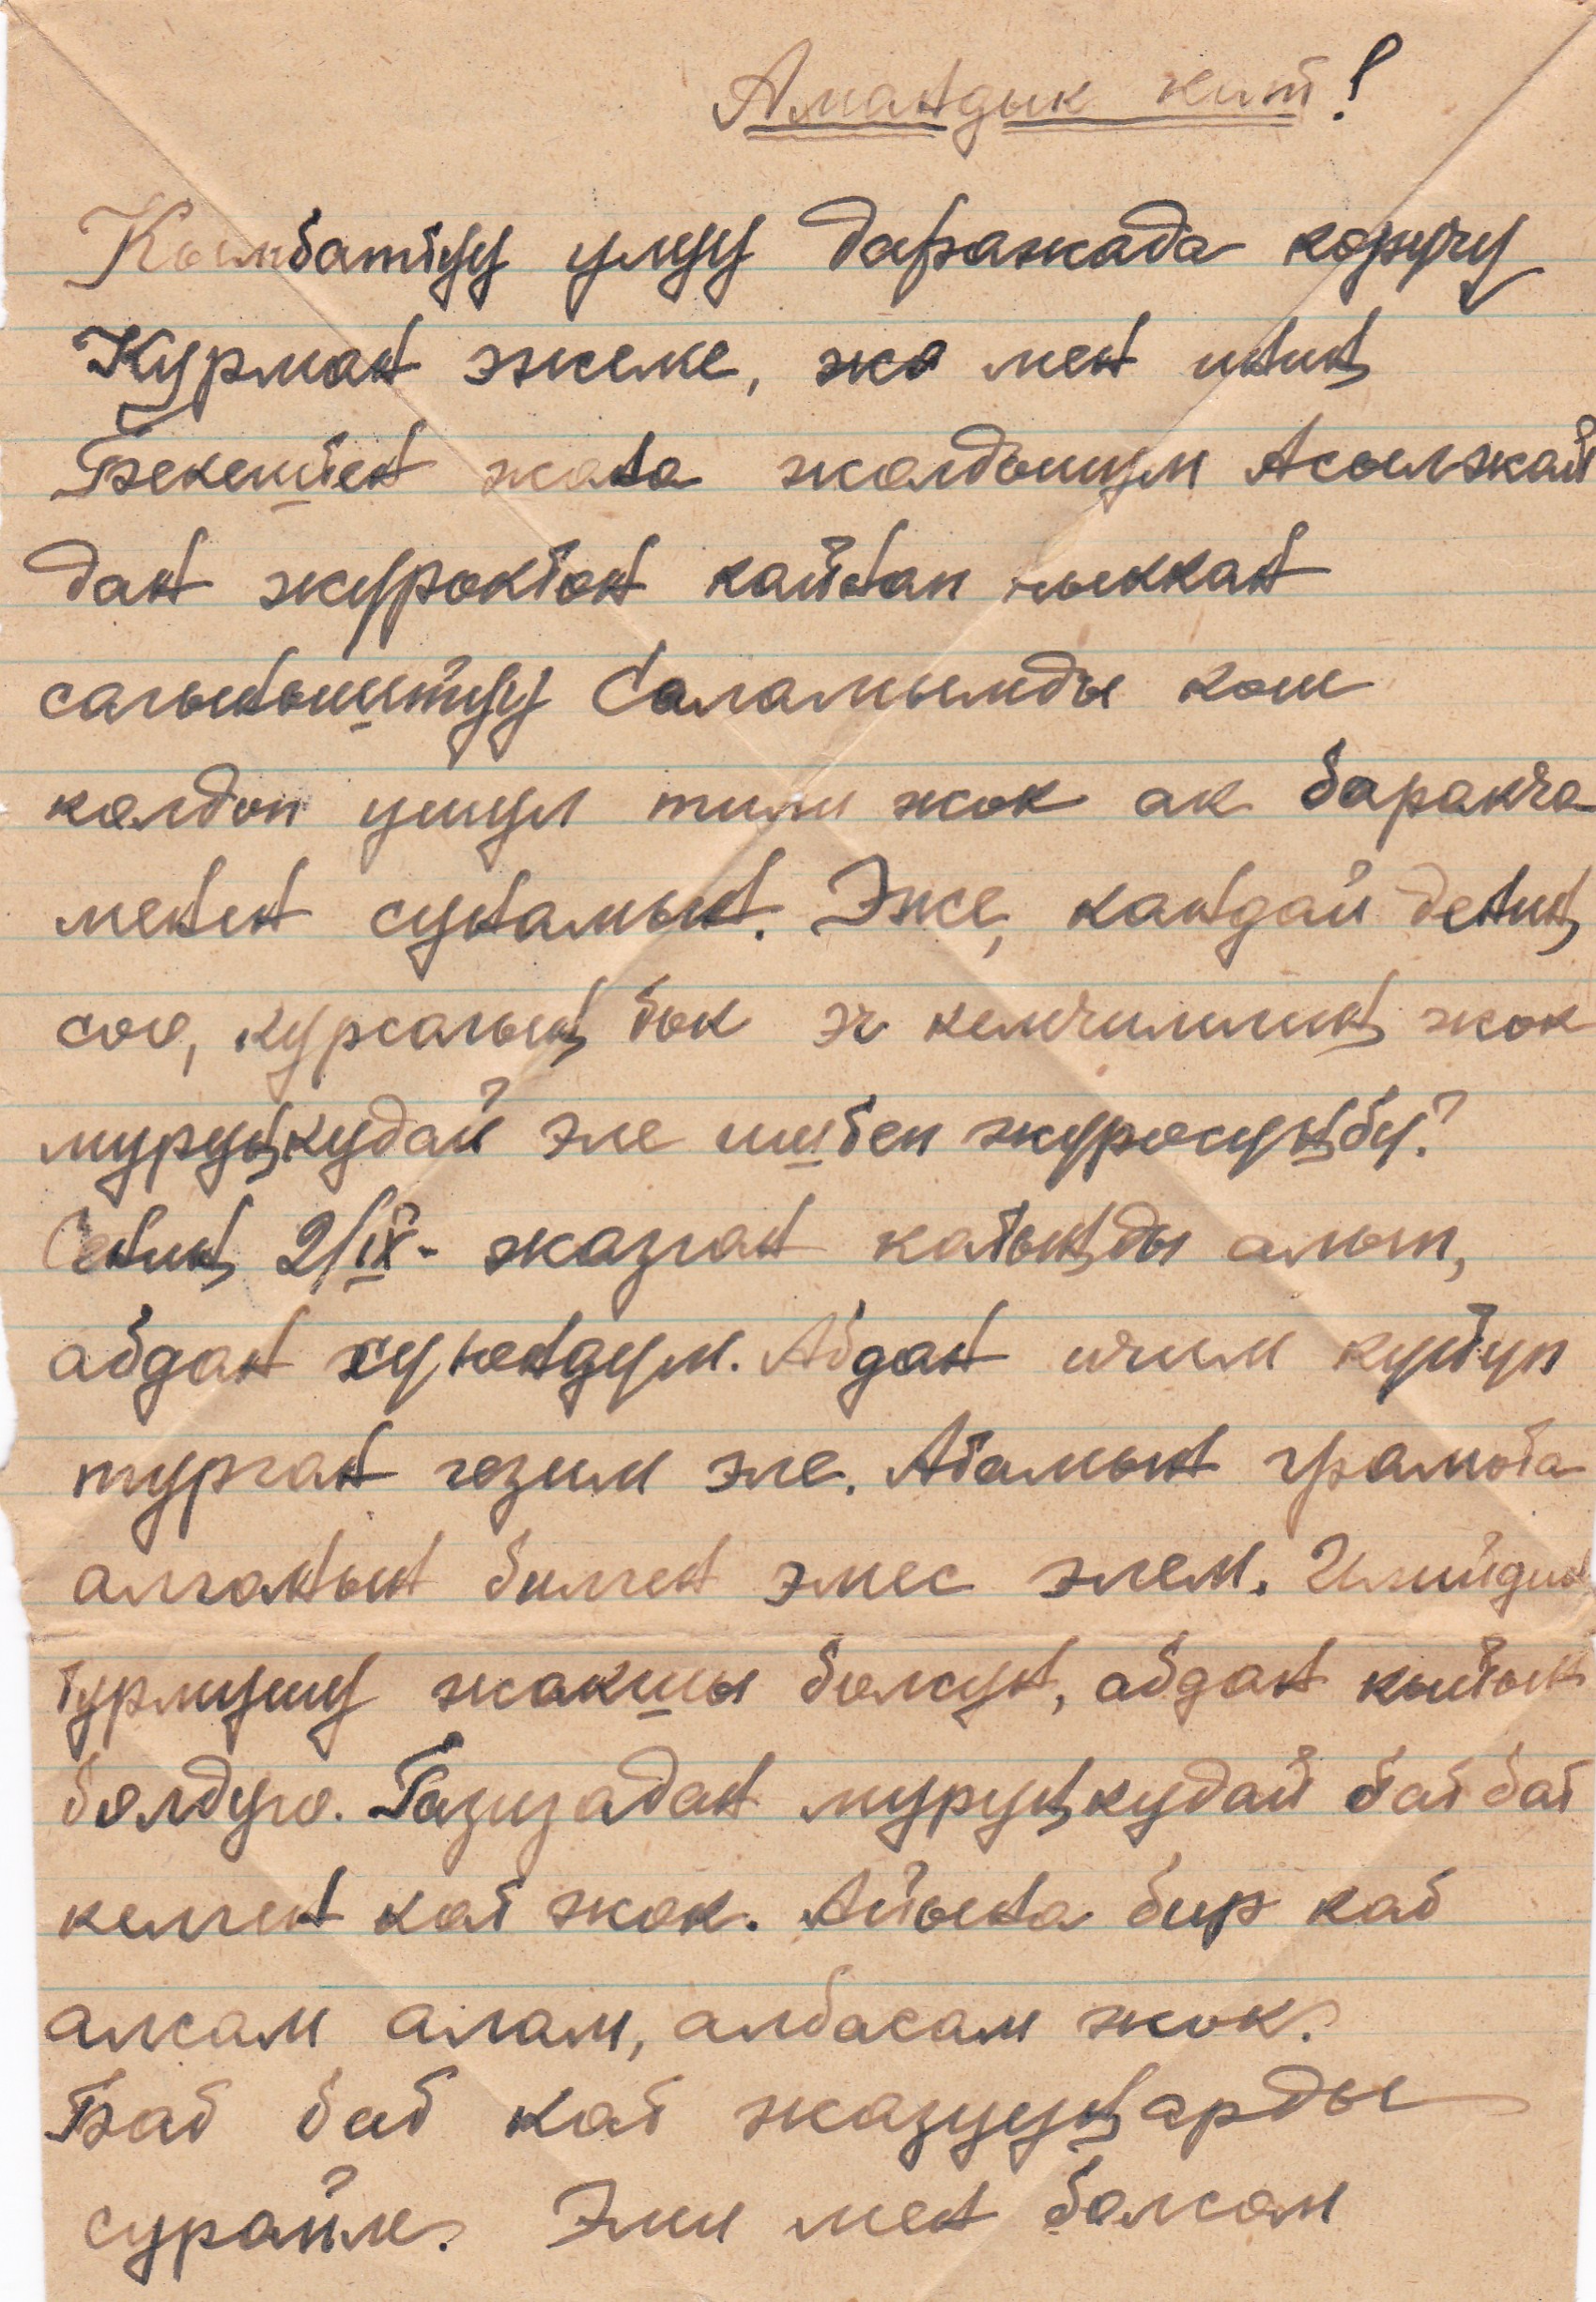 Амандык кат!
Кымбаттуу улуу даражада коруучу
Курман эжеме, жа мен иниң
Бекештен жана жолдошум Асылжай
дан журоктон кайнап чыккан
сагынычтуу Саламымды кош
колдоп ушул тили жок ак баракча
менен сунамын. Эже, кандай дениң
соо, курсагың ток эч кемчилигиң жок
муруңкудай эле иштеп журосуңбу?
Сениң 2/IX- жазган катыңды алып,
абдан суюндум. Абдан ичим куйуп
турган кезим эле. Атамын грамота
алганын билген эмес элем. Илийдин
турмушу жакшы болсун, абдан кыйын
болдуго. Газизадан муруңкудай бат бат
келген кат жок. Айына бир кат
алсам алам, албасам жок.
Бат бат кат жазууңарды
сурайм. Эми мен болсом